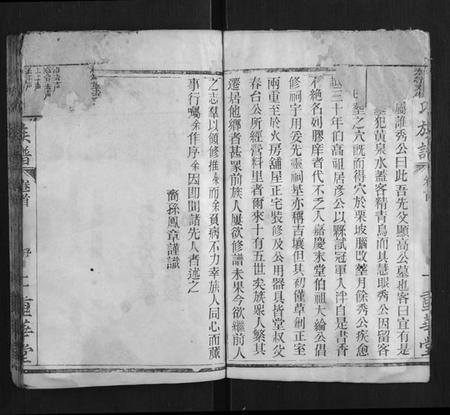 氏族譜
卷首
屬誰秀公曰此吾先父顯高公墓也客曰宣有是
墓犯黃泉水蓋客精青烏而具慧眼秀公因留客
之穴既而得穴於栗坡腦改葬月餘秀公疾愈
三十年伯高祖居彥公以縣試冠軍入泮自是書香
不絕名列膠庠者代不乏人嘉慶末堂伯祖大綸公倡
修祠宇用妥先靈祠基亦稱吉壤但其初僅草創正室
兩重至於火房舖屋正宅裝修及公用器具皆堂叔父
春台公所經營料里者爾來十有五世矣族眾人繁其
遷居他鄉者甚眾前族人屢欲修譜未果今欲繼前人
之志羣以領修推余而余負病不力幸族人同心而贓
事行囑余作序余因即聞諸先人者述之
裔孫鳳章謹識
族譜
卷首
序
二
重華堂
一
重華堂